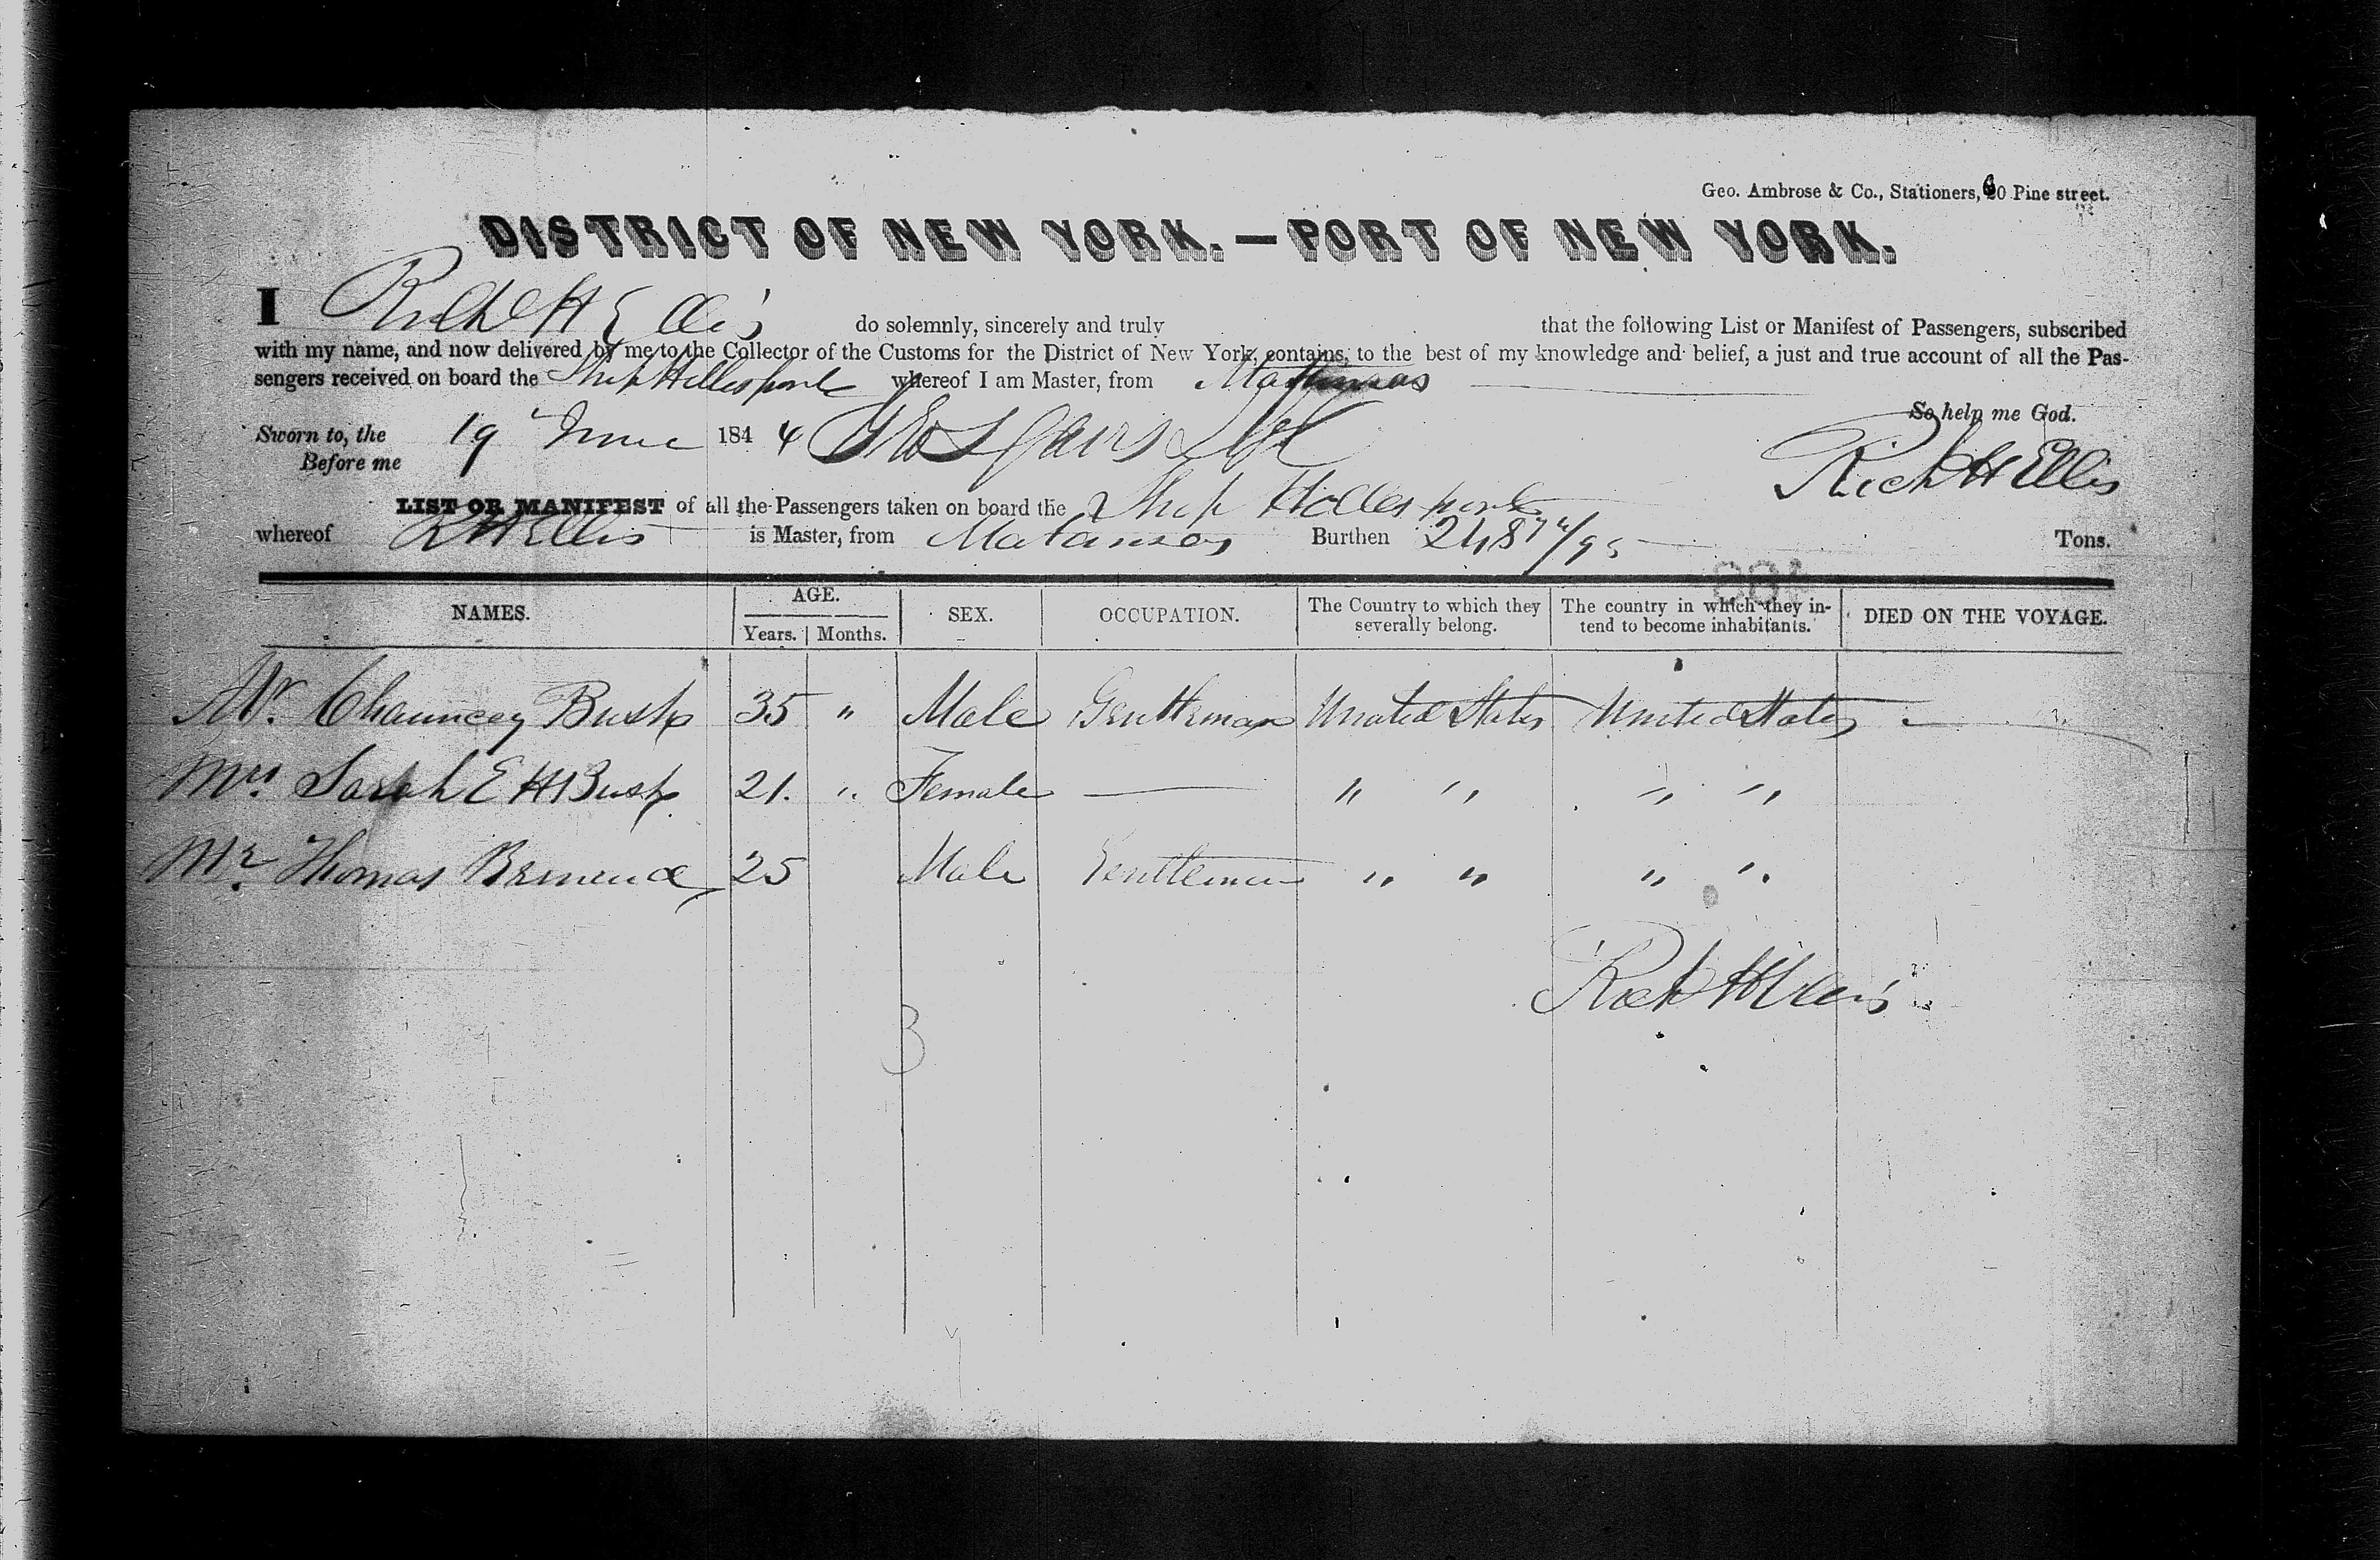 Geo. Ambrose & Co., Stationers, 60 Pine street.
DISTRICT OF NEW YORK.—PORT OF NEW YORK.
I Richd H Ellis do solemnly, sincerely and truly that the following List or Manifest of Passengers, subscribed
with my name, and now delivered by me to the Collector of the Customs for the District of New York, contains, to the best of my knowledge and belief, a just and true account of all the Pas-
sengers received on board the Ship Hellespont whereof I am Master, from
So help me God.
Sworn to, the 19 June 1844
Before me
Rich H Ellis
LIST OR MANIFEST of all the Passengers taken on board the Ship Hellespont
whereof R H Ellis is Master, from Matanzas Burthen Tons.
NAMES. AGE. Years. Months. SEX. OCCUPATION. The Country to which they severally belong. The country in which they in-tend to become inhabitants. DIED ON THE VOYAGE.
Mr. Chauncey Bush 35 " Male Gentleman United States United States
Mrs. Sarah E H Bush 21. " Female — " " " "
Mr. Thomas 25 Male Gentleman " " " "
Rich H Ellis
3